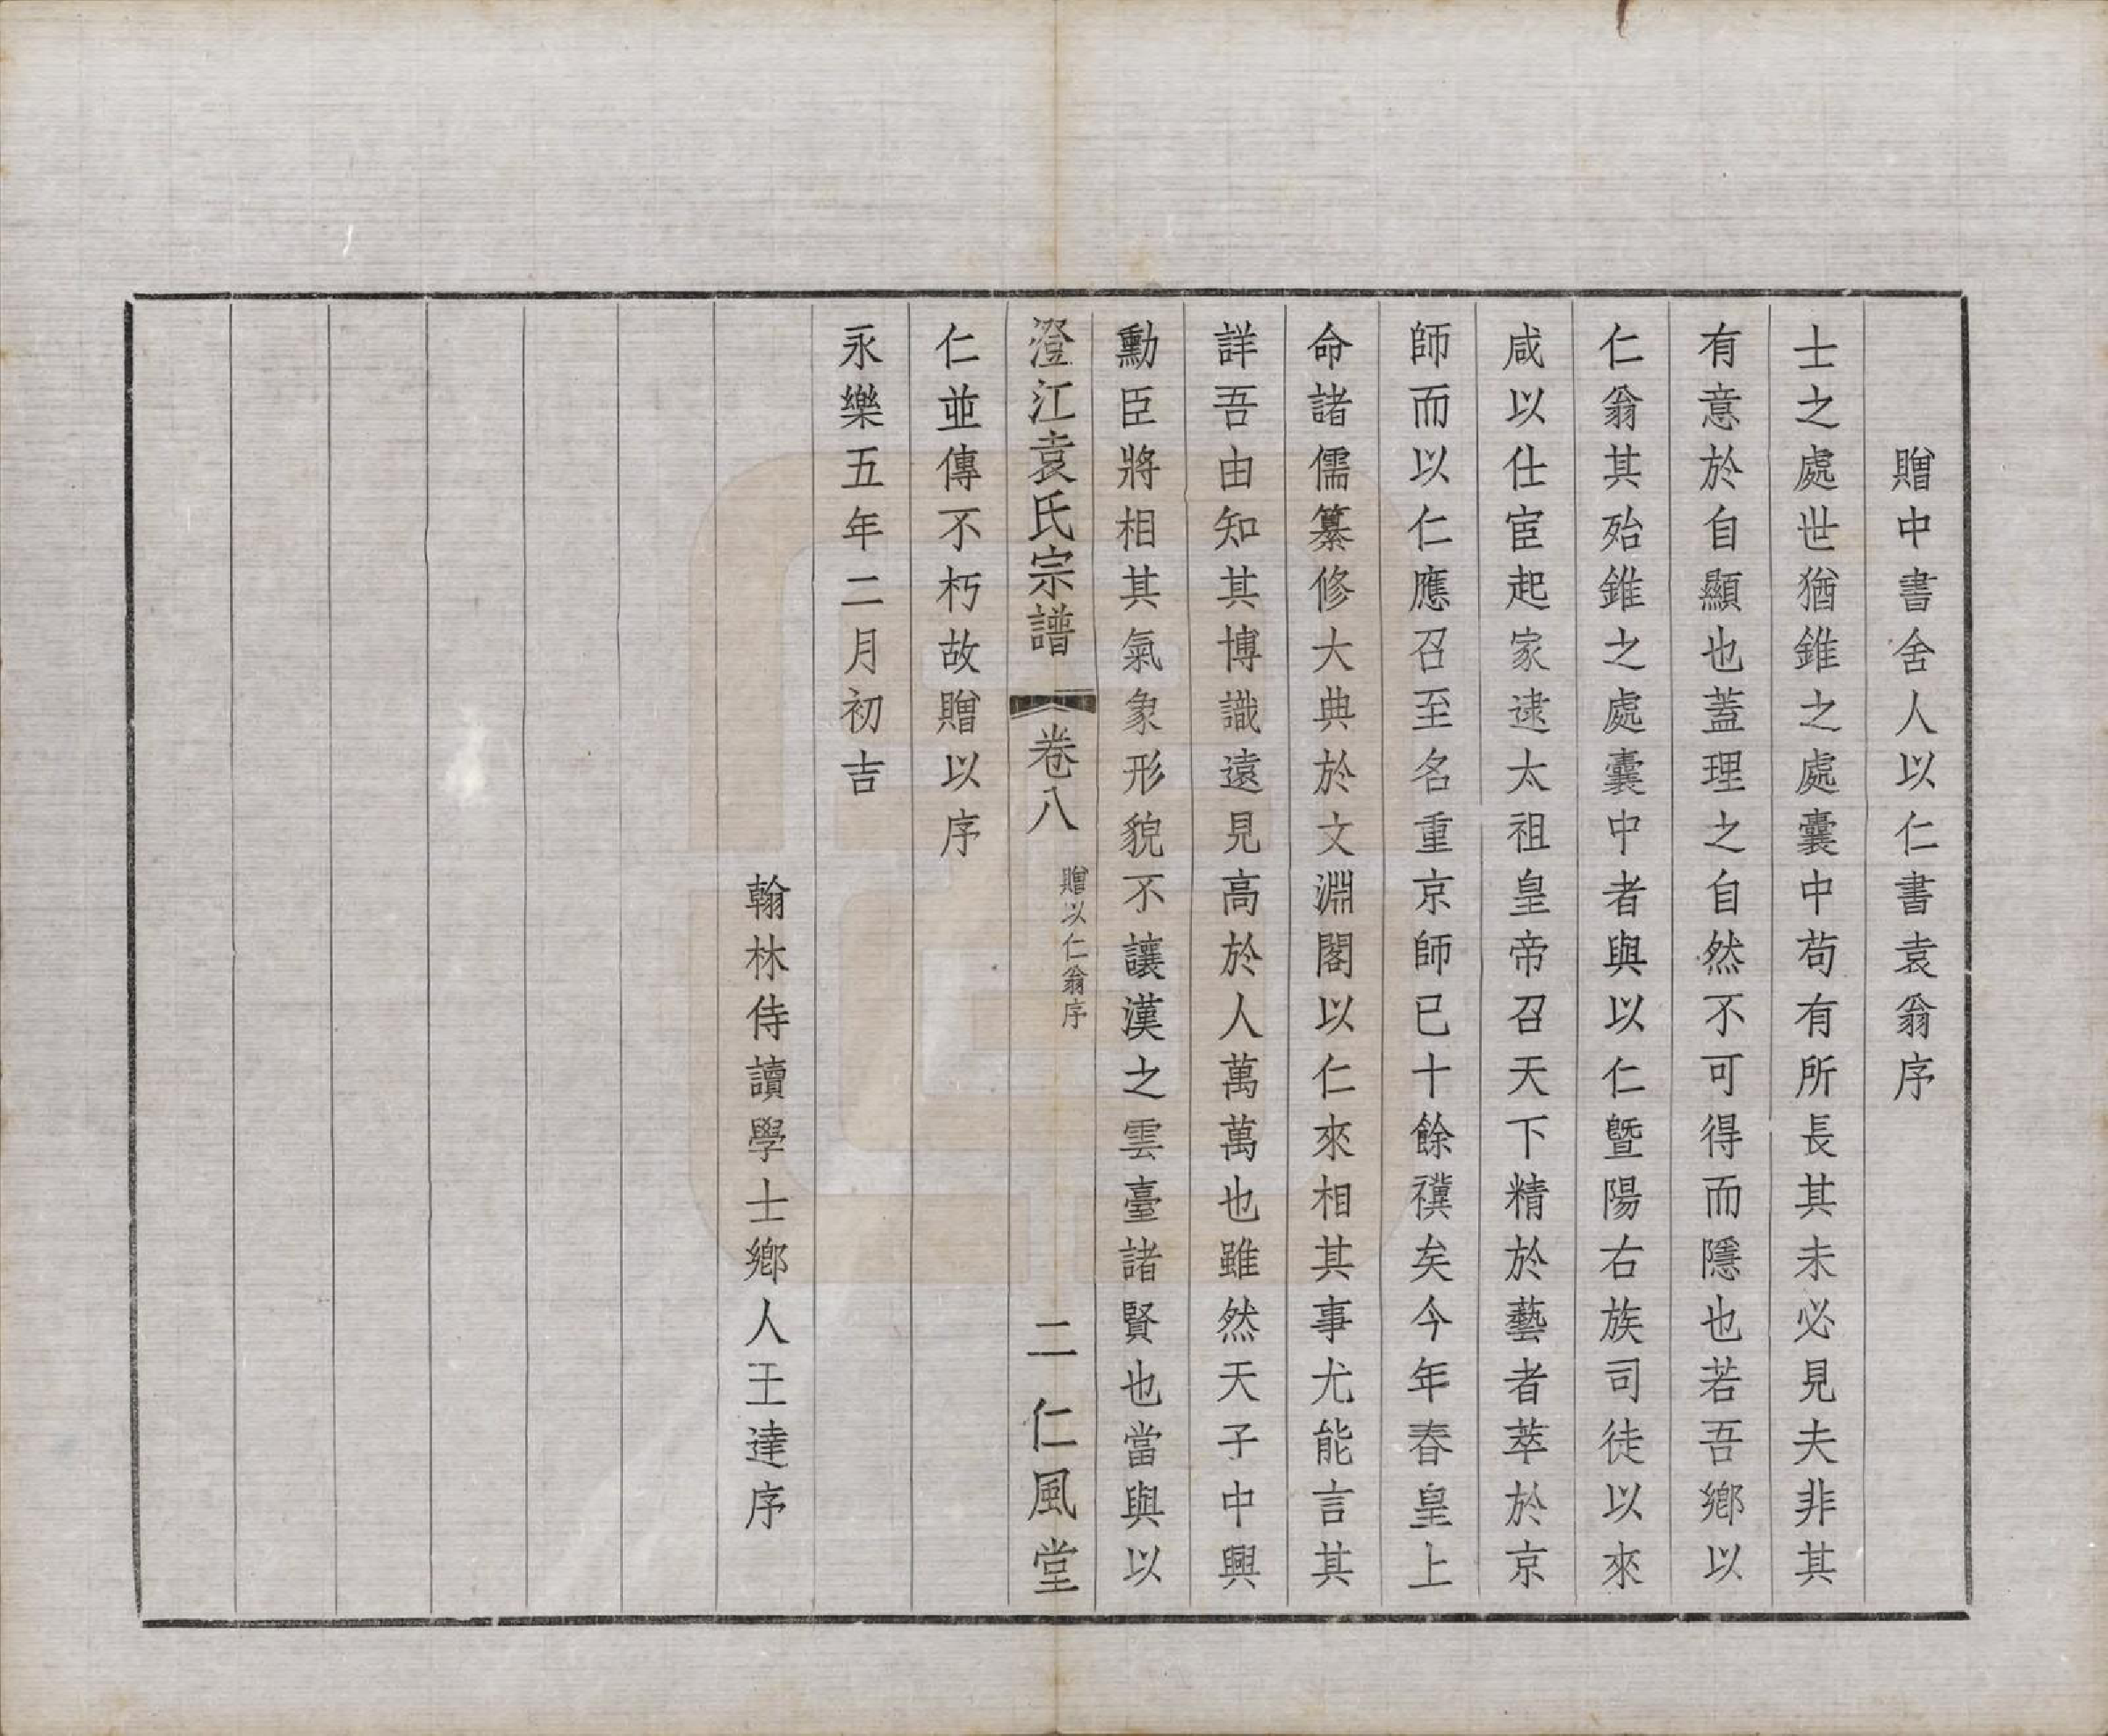 贈中書舍人以仁書袁翁序
士之處世猶錐之處囊中苟有所長其未必見夫非其
有意於自顯也蓋理之自然不可得而隱也若吾鄉以
仁翁其殆錐之處囊中者與以仁暨陽右族司徒以來
咸以仕宦起家逮太祖皇帝召天下精於藝者萃於京
師而以仁應召至名重京師已十餘禩矣今年春皇上
命諸儒纂修大典於文淵閣以仁來相其事尤能言其
詳吾由知其博識遠見高於人萬萬也雖然天子中興
勳臣將相其氣象形貌不讓漢之雲臺諸賢也當與以
澄江袁氏宗譜 卷八 贈以仁翁序 二 仁風堂
仁並傳不朽故贈以序
永樂五年二月初吉
翰林侍讀學士鄉人王達序